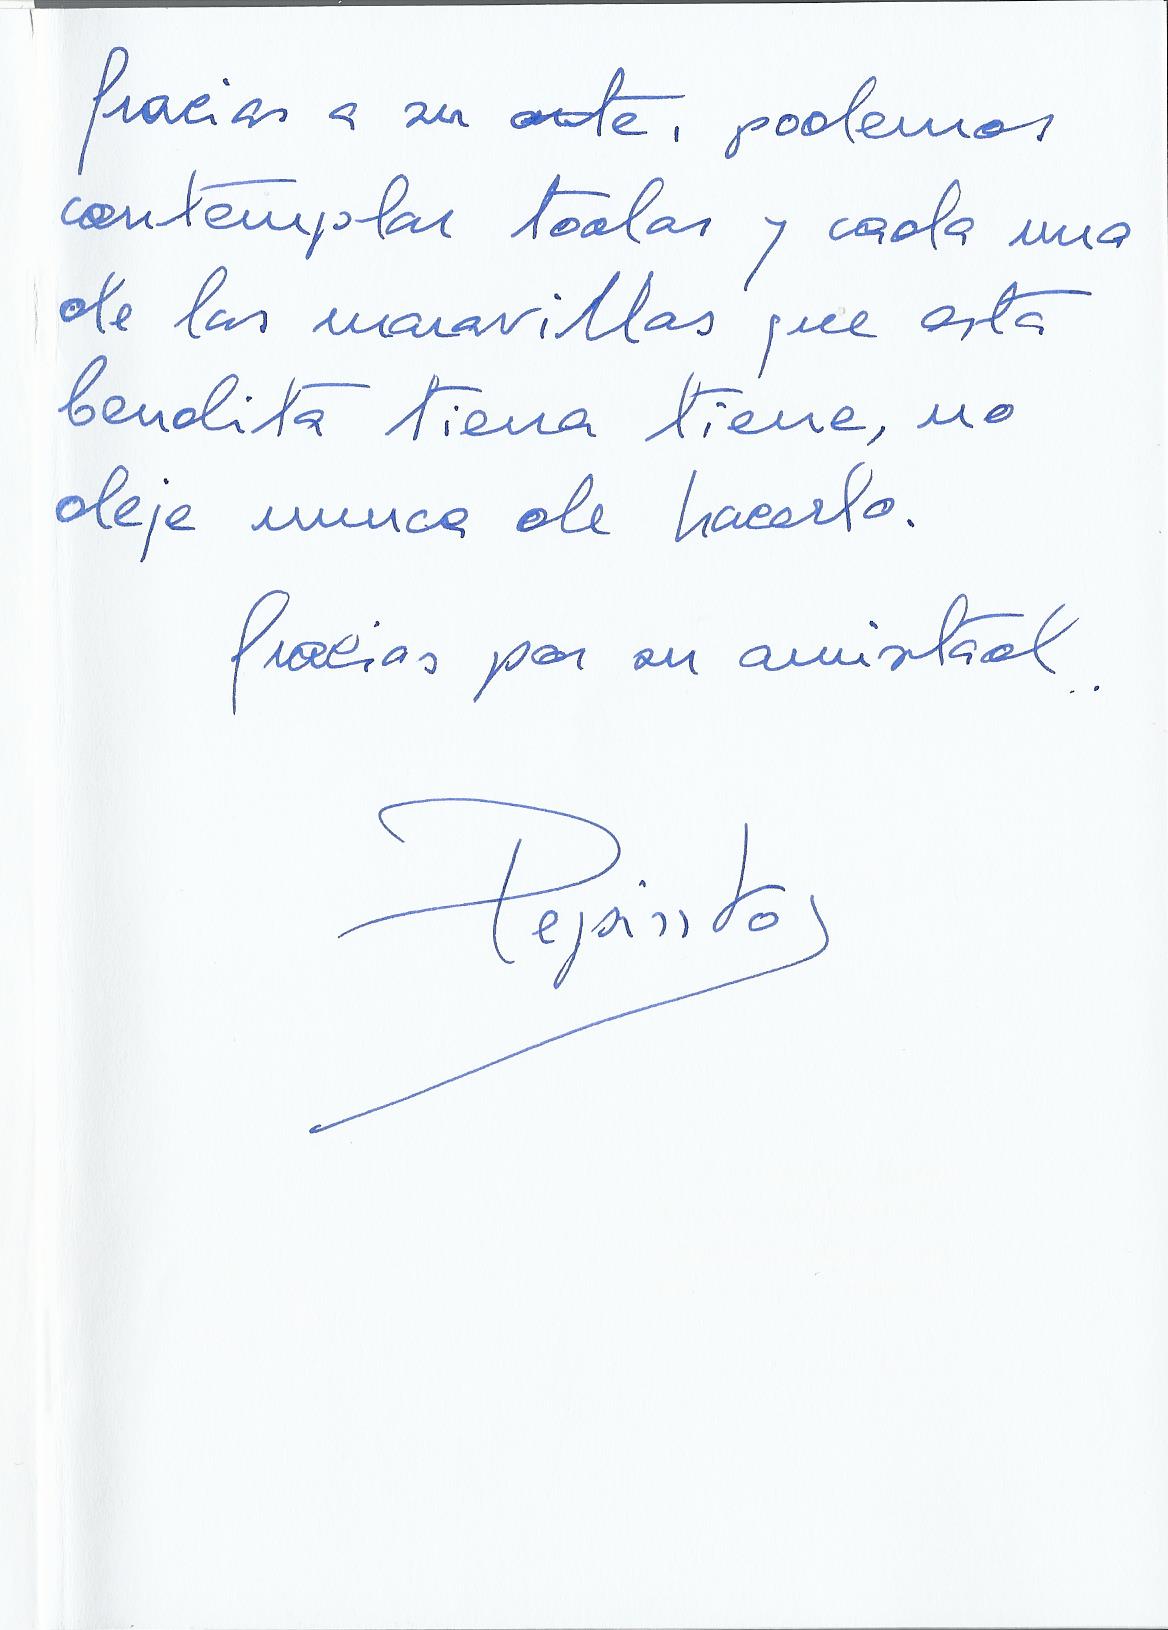 Gracias a su arte, podemos
contemplar todas y cada una
de las maravillas que esta
bendita tierra tiene, no
deje nunca de hacerlo.
Gracias por su amistad..